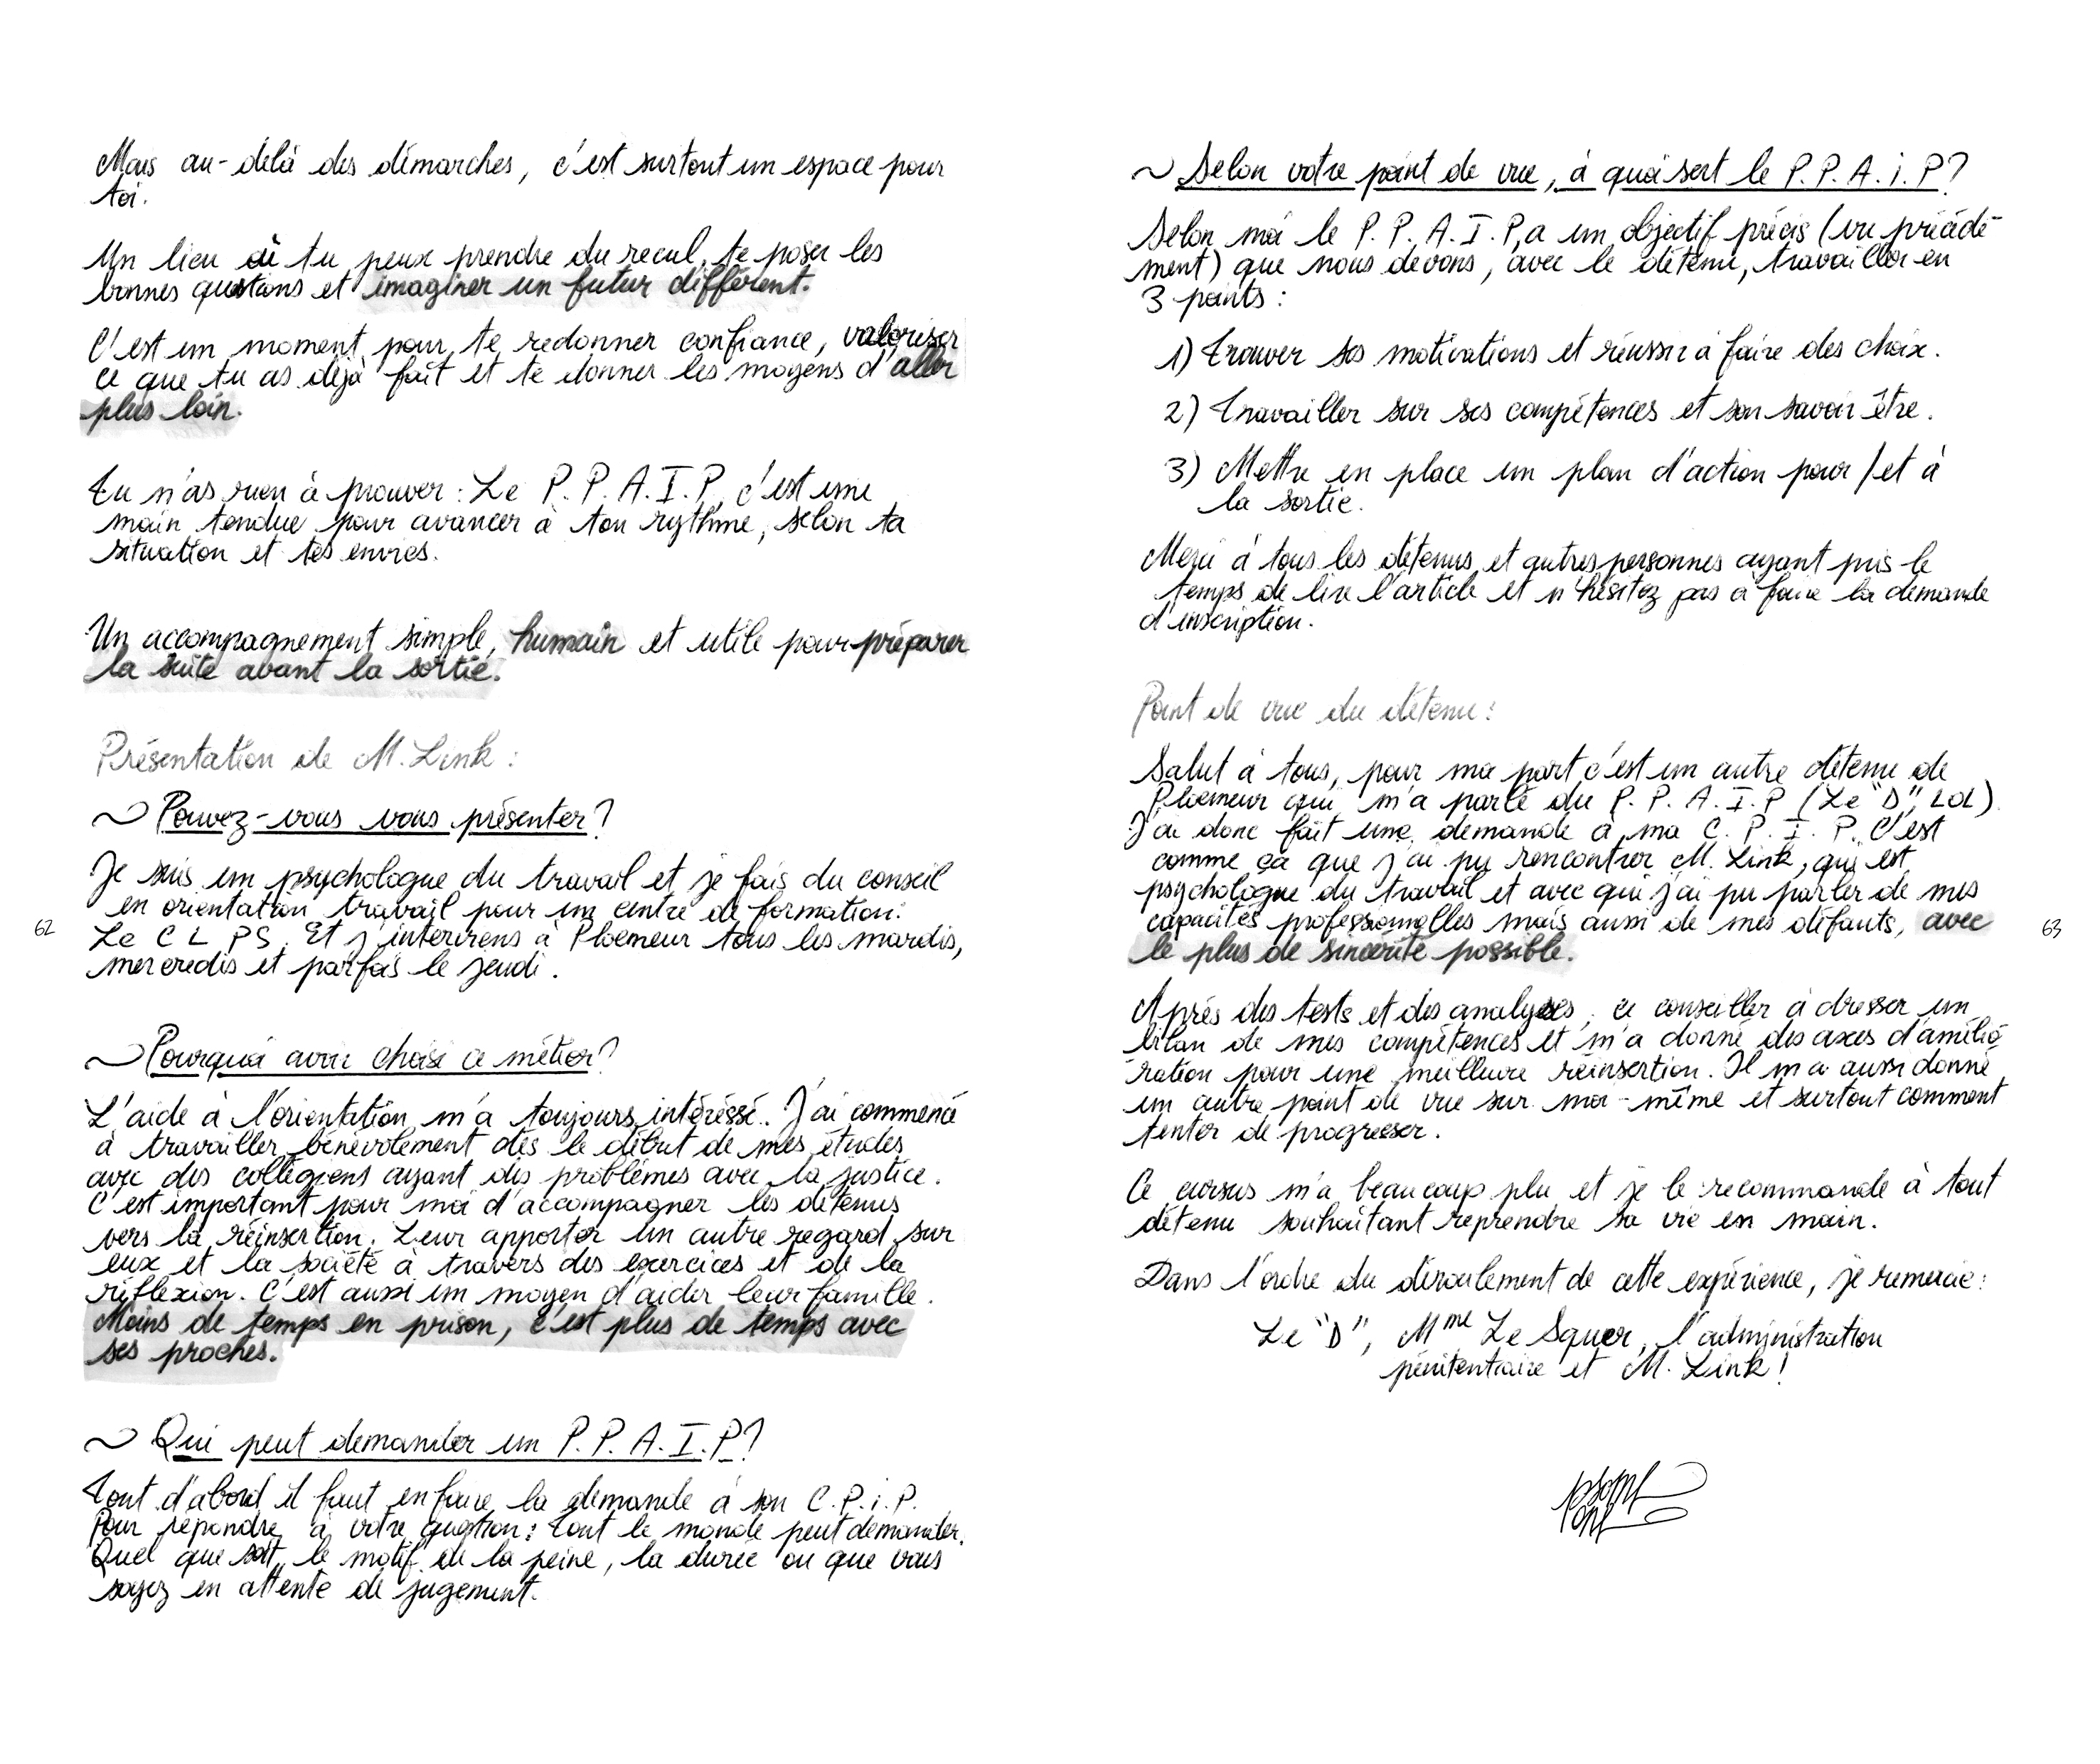 Mais au-delà des démarches, c'est surtout un espace pour
toi.
Un lieu où tu peux prendre du recul, te poser les
bonnes questions et imaginer un futur différent.
C'est un moment pour te redonner confiance, valoriser
ce que tu as déjà fait et te donner les moyens d'aller
plus loin.
Tu n'as rien à prouver : Le P.P.A.I.P, c'est une
main tendue pour avancer à ton rythme, selon ta
situation et tes envies.
Un accompagnement simple, humain et utile pour préparer
la suite avant la sortie.
Présentation de M. Link :
~ Pouvez-vous vous présenter ?
Je suis un psychologue du travail et je fais du conseil
en orientation travail pour un centre de formation :
Le CLPS. Et j'interviens à Ploemeur tous les mardis,
mercredis et parfois le jeudi.
~ Pourquoi avoir choisi ce métier ?
L'aide à l'orientation m'a toujours intéréssé. J'ai commencé
à travailler bénévolement dès le début de mes études
avec des collégiens ayant des problèmes avec la justice.
C'est important pour moi d'accompagner les détenus
vers la réinsertion. Leur apporter un autre regard sur
eux et la société à travers des exercices et de la
réflexion. C'est aussi un moyen d'aider leur famille.
Moins de temps en prison, c'est plus de temps avec
ses proches.
~ Qui peut demander un P.P.A.I.P ?
Tout d'abord il faut en faire la demande à son C.P.i.P.
Pour répondre à votre question : tout le monde peut demander.
Quel que soit le motif de la peine, la durée ou que vous
soyez en attente de jugement.
62
~ Selon votre point de vue, à quoi sert le P.P.A.i.P ?
Selon moi le P.P.A.I.P, a un objectif précis (vu précédé-
ment) que nous devons, avec le détenu, travailler en
3 points :
1) Trouver ses motivations et réussir à faire des choix.
2) Travailler sur ses compétences et son savoir être.
3) Mettre en place un plan d'action pour/et à
la sortie.
Merci à tous les détenus et autres personnes ayant pris le
temps de lire l'article et n'hésitez pas à faire la demande
d'inscription.
Point de vue du détenu :
Salut à tous, pour ma part c'est un autre détenu de
Ploemeur qui m'a parlé du P.P.A.I.P (Le "D", LOL).
J'ai donc fait une demande à ma C.P.I.P. C'est
comme ça que j'ai pu rencontrer M. Link, qui est
psychologue du travail et avec qui j'ai pu parler de mes
capacités professionnelles mais aussi de mes défauts, avec
le plus de sincérité possible.
Après des tests et des analyses, ce conseiller à dresser un
bilan de mes compétences et m'a donné des axes d'amélio-
ration pour une meilleure réinsertion. Il m'a aussi donné
un autre point de vue sur moi-même et surtout comment
tenter de progresser.
Ce cursus m'a beaucoup plu et je le recommande à tout
détenu souhaitant reprendre sa vie en main.
Dans l'ordre du déroulement de cette expérience, je remercie :
Le "D", Mme Le Squer, l'administration
pénitentiaire et M. Link !
63